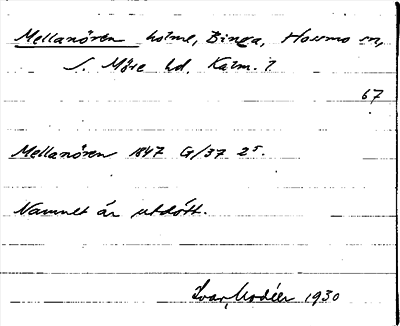 Mellanören holme, Binga, Hossmo sn,
S. Möre hd. Kalm. l
67
Mellanören 1847 G/37 25.
Namnet är utdött.
Ivar Modéer 1930